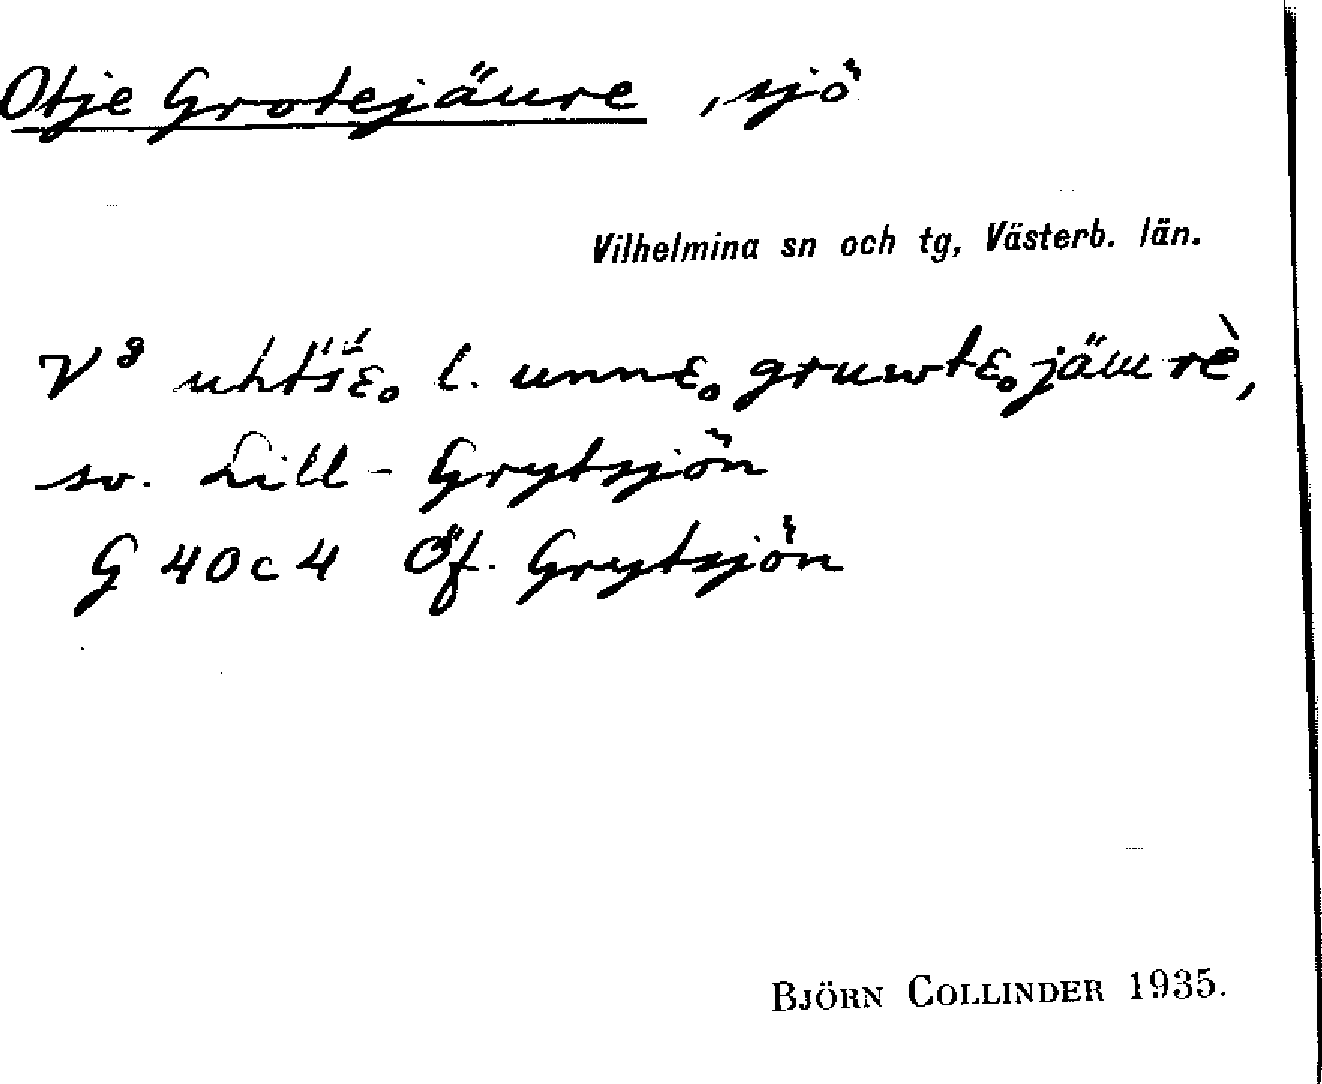 Otje Grotejäure, sjö
Vilhelmina sn och tg, Västerb. län.
V⁹ uhtśśɛ̥ l. unnɛ̥ gruwtɛ̥jäurè,
sv. Lill-Grytsjön
G 40c4 Öf. Grytsjön
BJÖRN COLLINDER 1935.